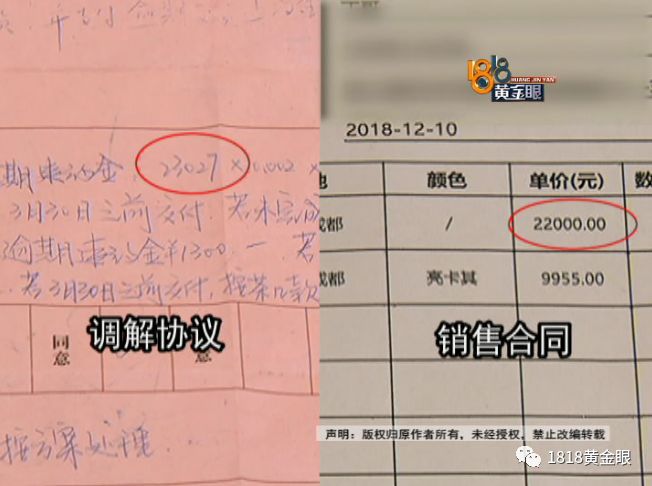 期违约金 23027 ×0.002 ×
3月30日之前交付.若未完成
逾期违约金¥1300.一.若
.若3月30日之前交付,按第几款
同意
意
调解协议
按方案处理
1818
HUANG JIN YAN
黄金眼
2018-12-10
地 颜色 单价(元) 数
成都 / 22000.00
成都 亮卡其 9955.00
销售合同
声明：版权归原作者所有，未经授权，禁止改编转载
1818黄金眼